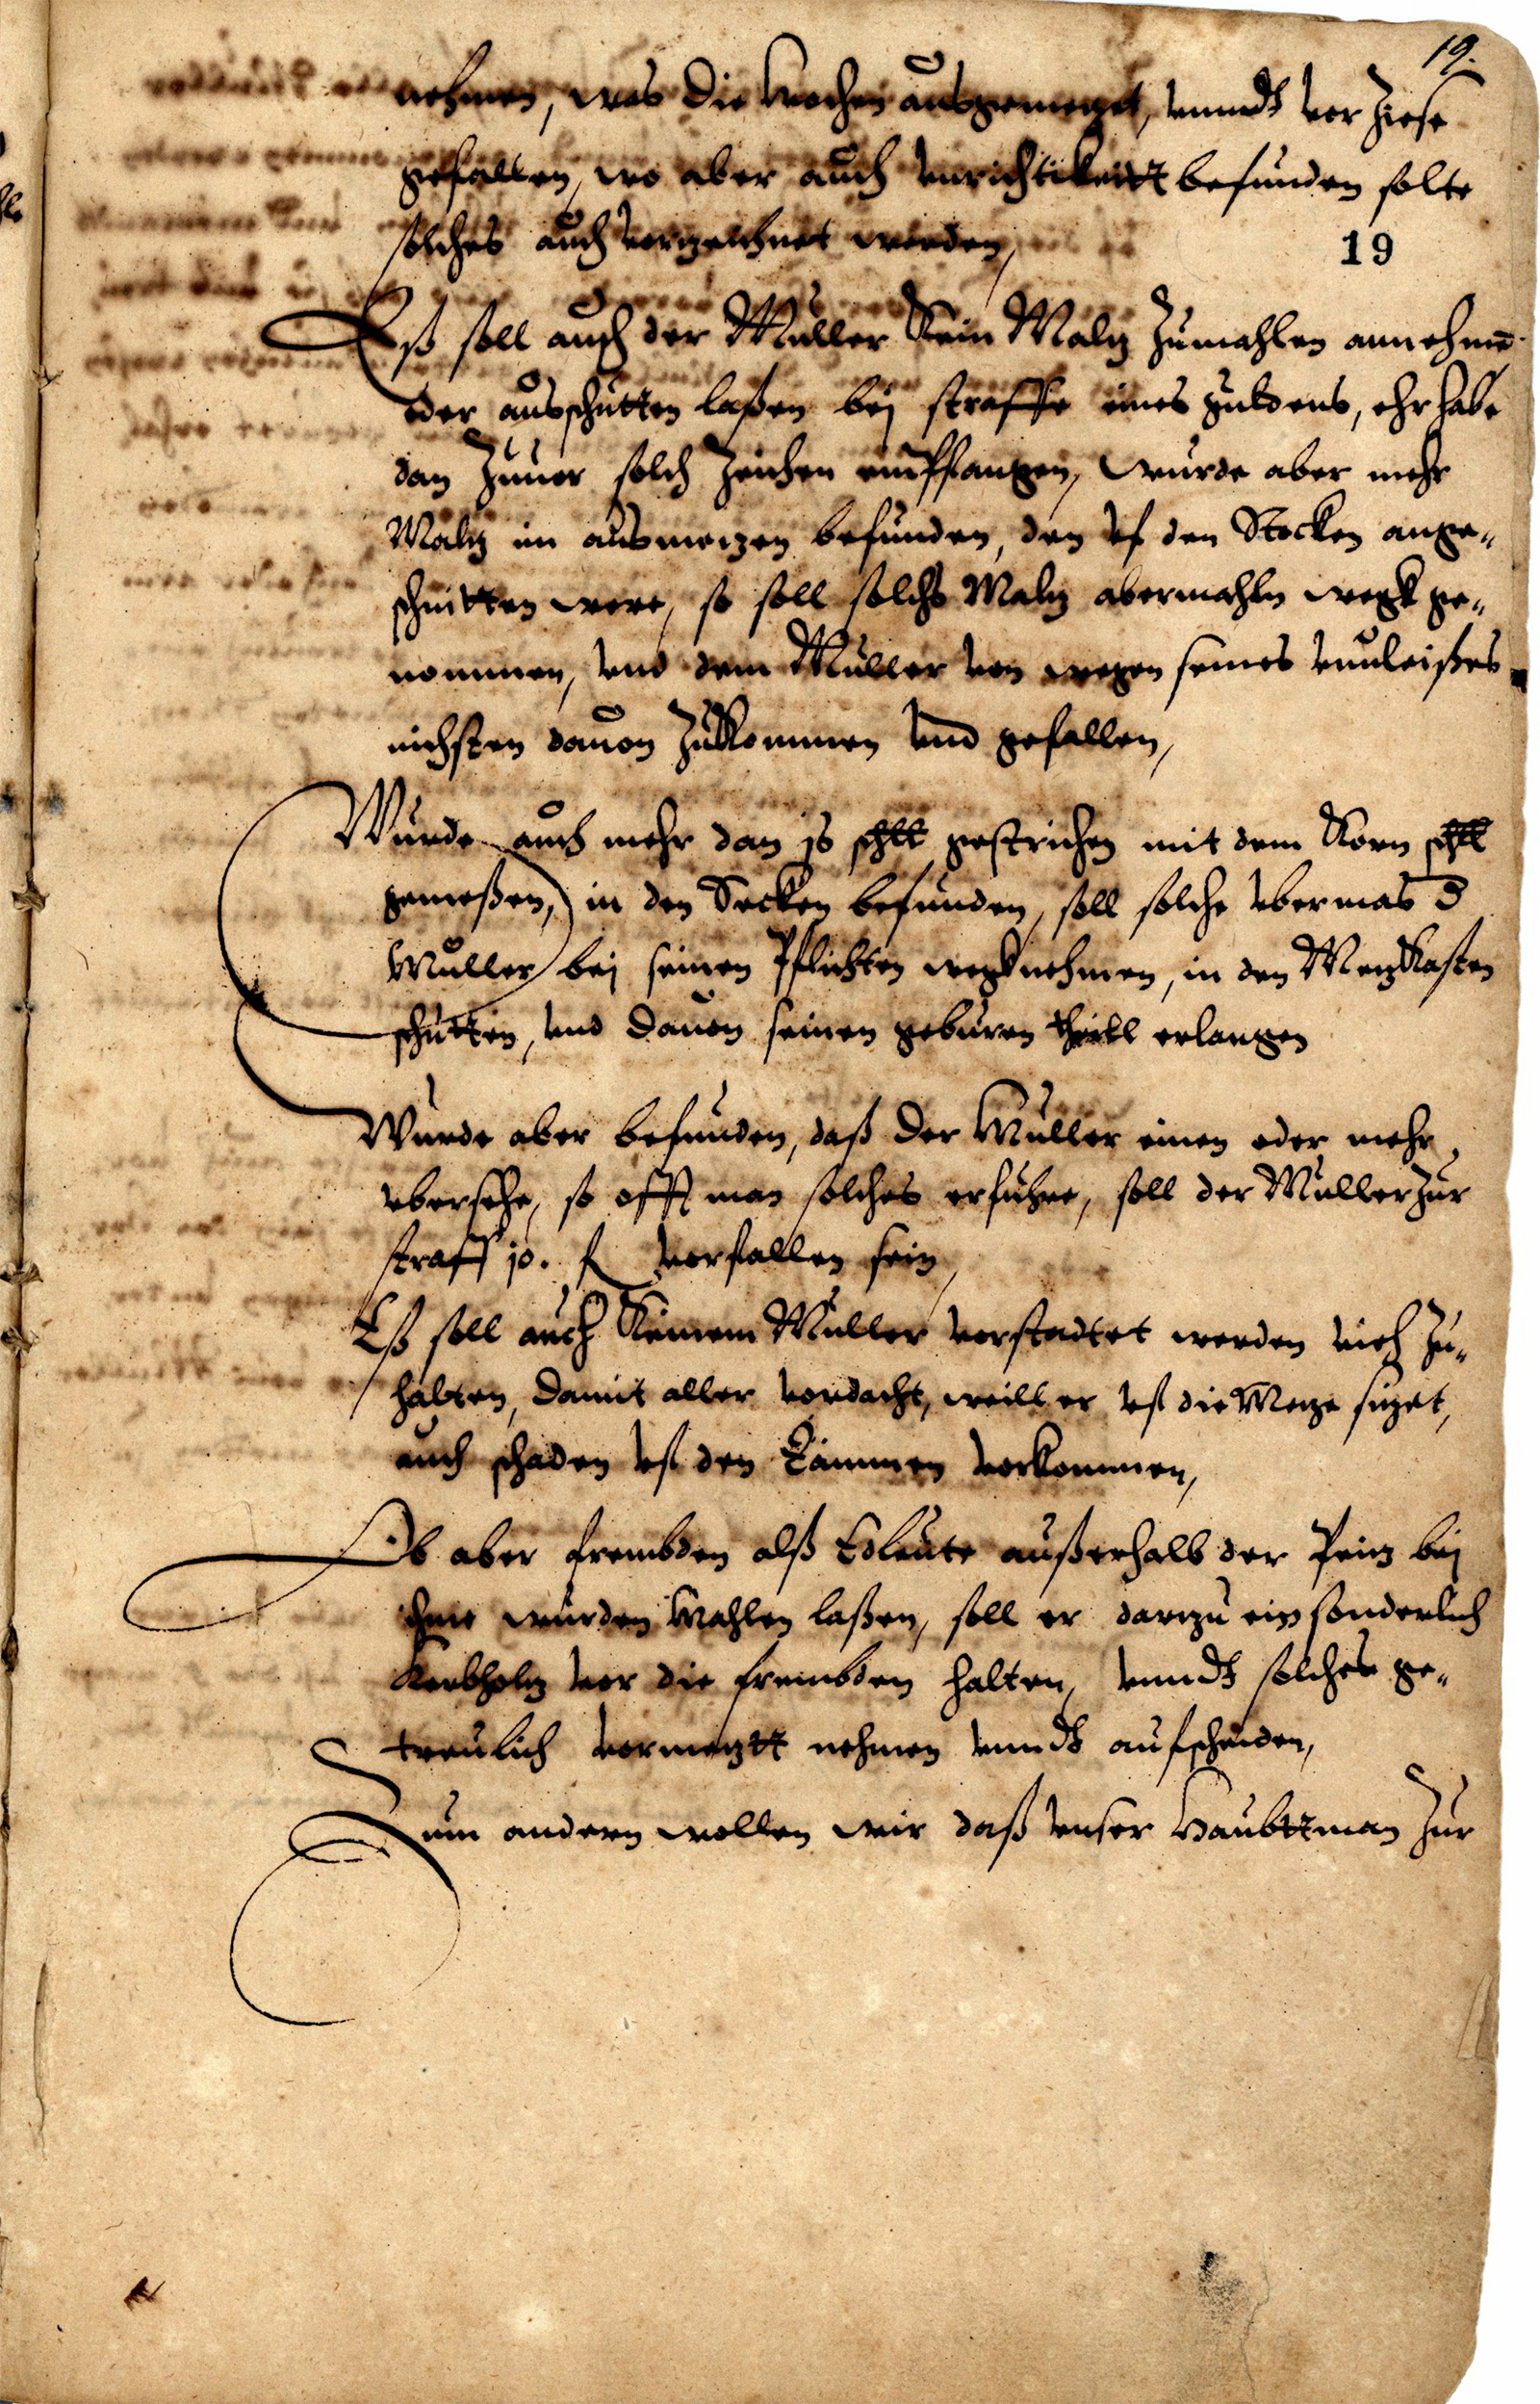 19.
nehmen, was die wochen ausgemetzet, vnndt vor Ziese
gefallen, wo aber auch vnrichtikeitt befunden solte
solches auch vorzeichnet werden,
19
Eß soll auch der Muller Kein Maltz Zumahlen annehmē
oder ausschutten laßen bej straffe eines guldens, ehr habe
dan Zuuor solch Zeichen empffangen, wurde aber mehr
Maltz im ausmetzen befunden, den vf den Stocken ange„
schnitten were, so soll solchs Maltz abermahln wegk ge„
nommen, vnd dem Muller von wegen seines vnuleißes
nichsten dauon Zukommen vnd gefallen,
Wurde auch mehr dan js schll gestrichen mit dem Korn schll
gemeßen, in den Secken befunden, soll solche vbermas d
Muller bej seinen Pflichten wegknehmen, in den Metzkasten
schutten, vnd dauon seinen geburen theill erlangen
Wurde aber befunden, daß der Muller einen oder mehr
vbersehe, so offt man solches erfuhre, soll der Muller Zur
straff 10. f vorfallen sein,
Eß soll auch Keinem Muller vorstadtet werden vieh Zu„
halten, damit aller vordacht, weill er vf die Metze sitzet,
auch schaden vf den Tämmen vorkommen,
Ob aber frembden alß Edleute außerhalb der Peitz bej
ihme wurden Mahlen laßen, soll er dartzu ein sonderlich
Kerbholtz vor die frembden halten, vnndt solches ge„
treulich vormetztt nehmen vnndt aufschneiden,
Zum andern wollen wir daß vnser Haubttman Zur